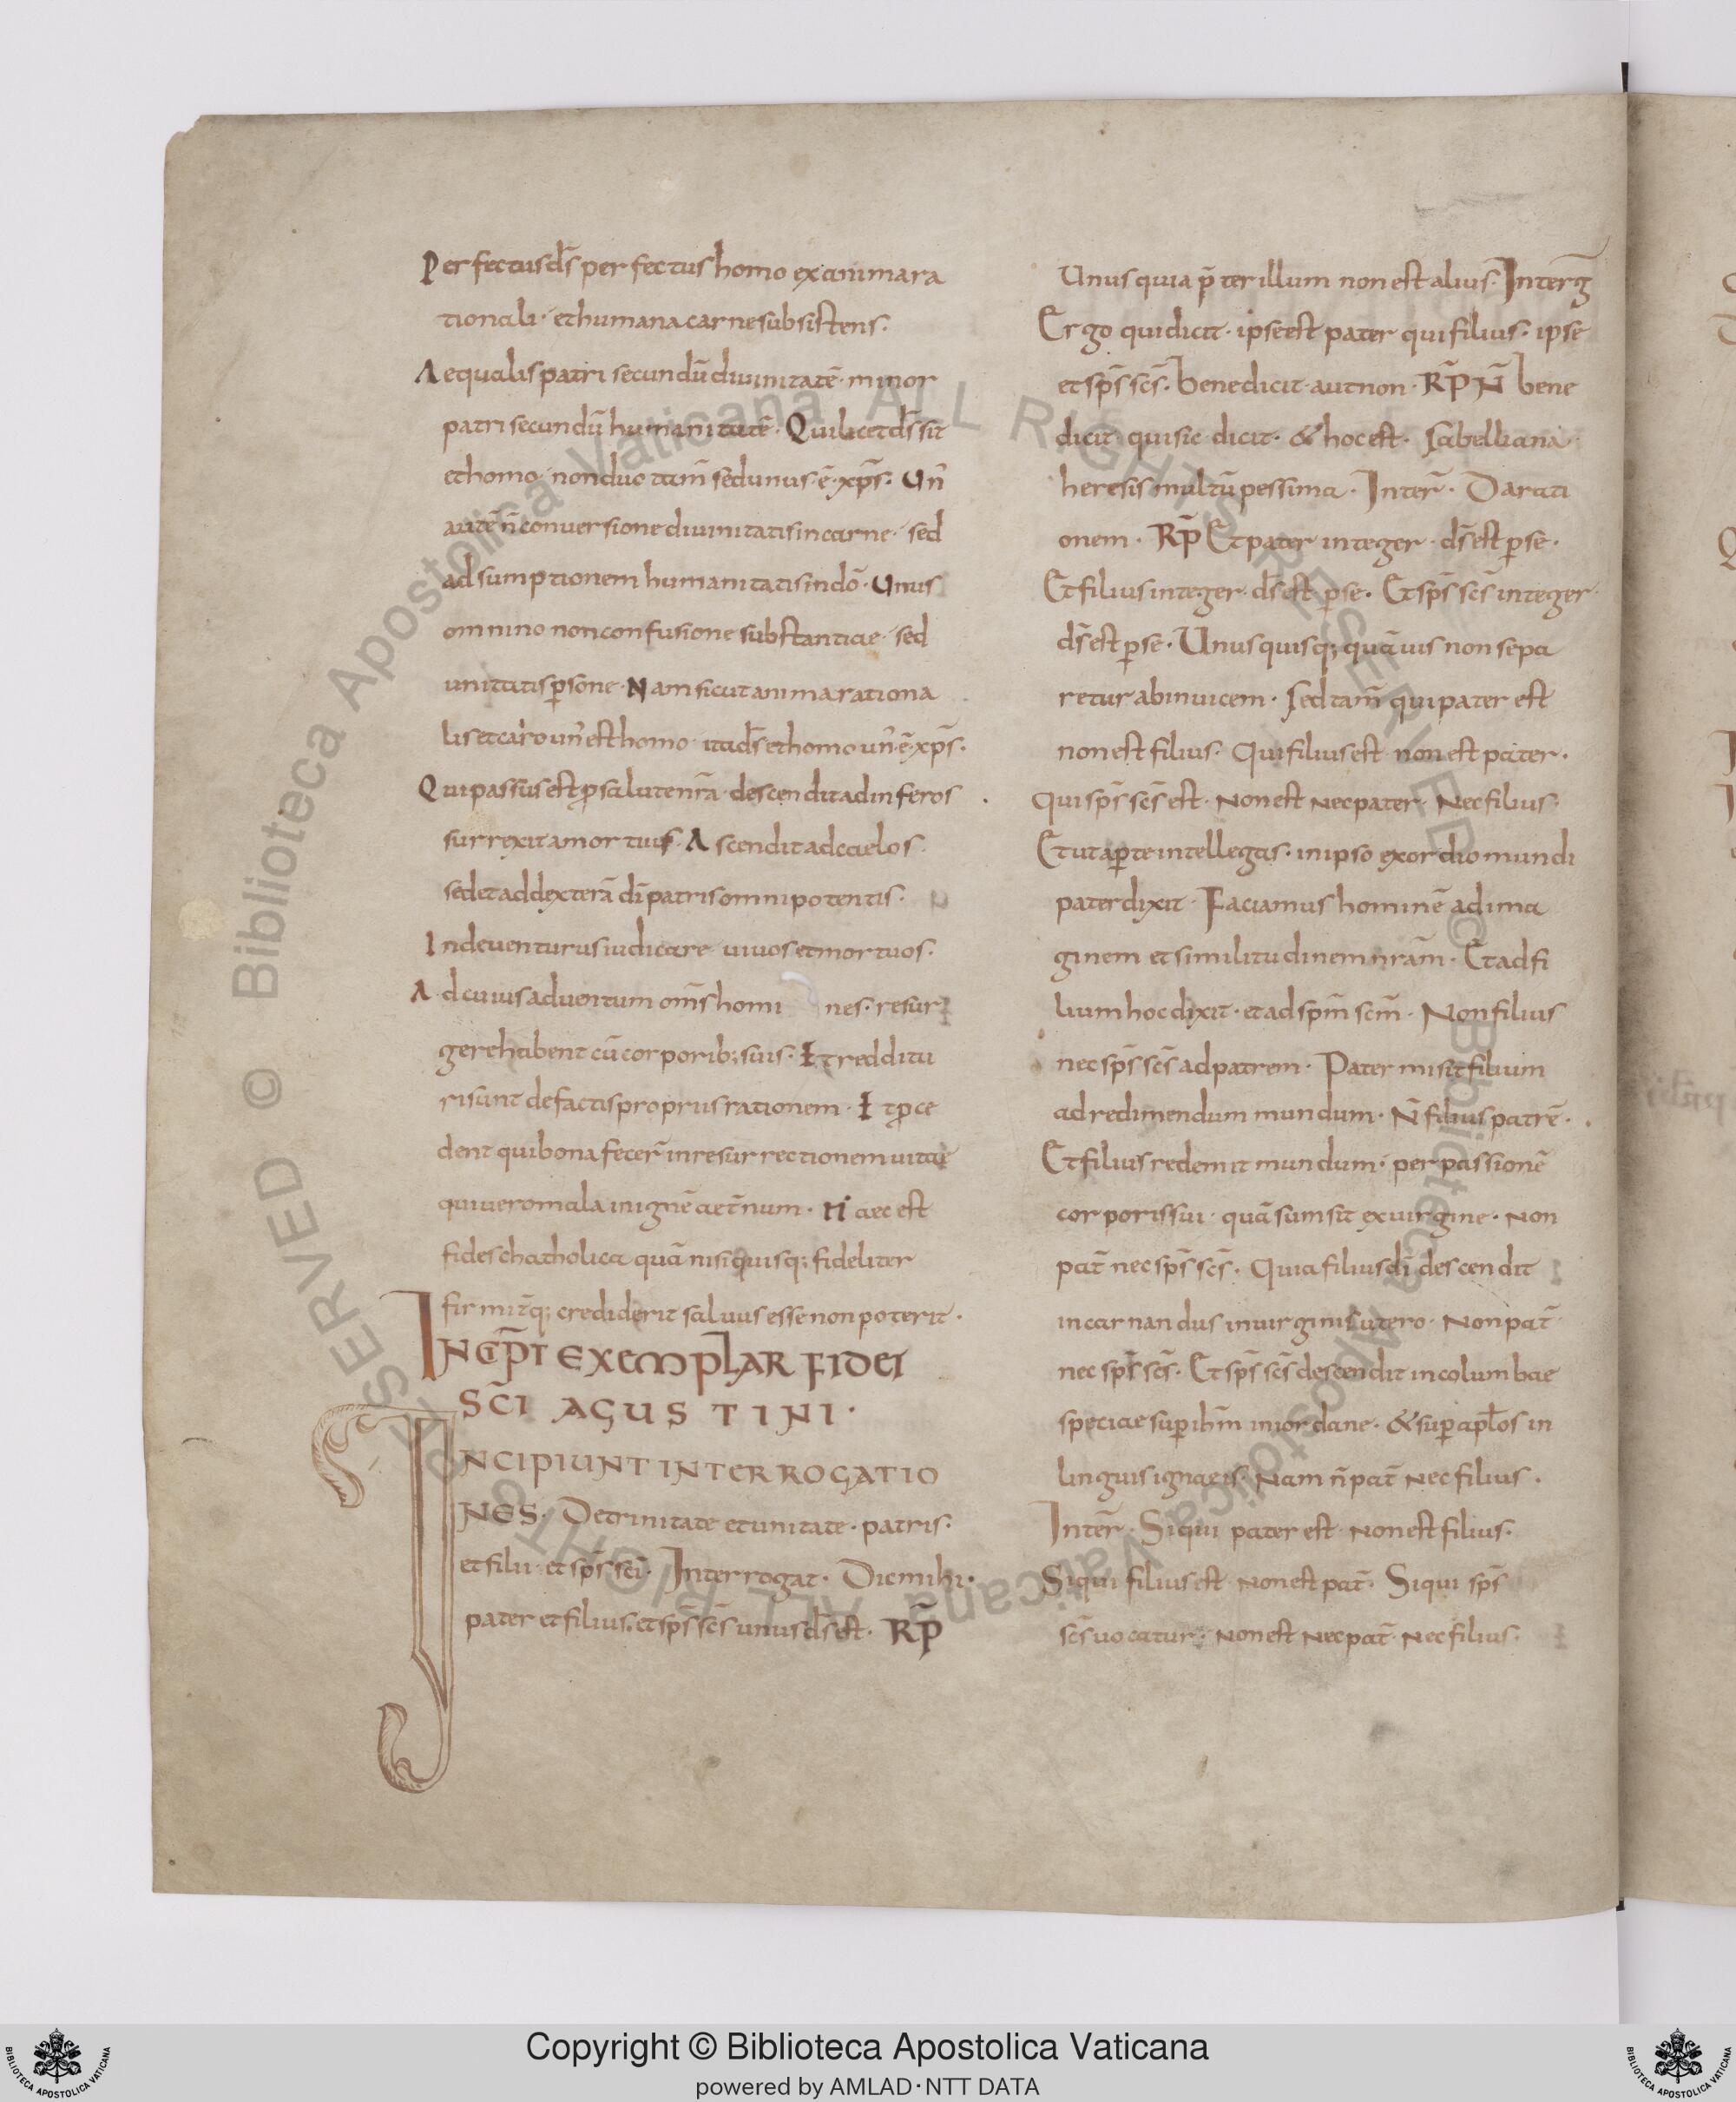 Perfectus ds̄ perfectus homo ex anima ra
tionali · et humana carne subsistens ·
Aequalis patri secundū diuinitatē · minor
patri secundū humanitatē · Qui licet ds̄ sit
et homo · non duo tam̄ sed unus · ē · xp̄s · Un̄
autē n̄ conuersione diuinitatis in carne · sed
adsumptionem humanitatis in dō · Unus
omnino non confusione substantiae · sed
unitatis psone · Nam sicut anima rationa
lis et caro un̄ est homo · ita ds̄ et homo un̄ · ē · xp̄s ·
Qui passus est p salute nrā · descendit ad inferos
surrexit a mortuis · Ascendit ad caelos ·
sedet ad dexterā dī patris omnipotentis ·
Inde uenturus iudicare · uiuos et mortuos ·
Ad cuius aduentum om̄s homi nes · resur
gere habent cū corporib; suis · Et redditu
ri sunt de factis propriis rationem · Et pce
dent qui bona fecer̄ in resurrectionem uitae
qui uero mala in ignē aet̄num · Haec est
fides chatholica quā nisi quisq; fideliter
firmit̄q; crediderit saluus esse non poterit ·
INCIP̄T EXEMPLAR FIDEI
SC̄I AGUSTINI ·
INCIPIUNT INTERROGATIO
NES · De trinitate et unitate · patris ·
et filii · et sp̄s scī · Interrogat · Dic mihi ·
pater et filius · et sp̄s sc̄s unus ds̄ est · RP̄
Unus quia p̄ter illum non est alius · Interg̅
Ergo qui dicit · ipse est pater qui filius · ipse
et sp̄s sc̄s · bene dicit · aut non · RP̄ N̄ bene
dicit · qui sic dicit · & hoc est · Sabelliana
heresis multū pessima · Inter̄ · Da rati
onem · RP̄ Et pater integer · ds̄ est p se ·
Et filius integer · ds̄ est p se · Et sp̄s sc̄s integer ·
ds̄ est p se · Unusquisq; quāuis non sepa
retur abinuicem · Sed tam̄ qui pater est
non est filius · Qui filius est · non est pater ·
Qui sp̄s sc̄s est · Non est nec pater · Nec filius ·
Et ut apte intellegas · in ipso exordio mundi
pater dixit · Faciamus hominē ad ima
ginem et similitudinem nrām · Et ad fi
lium hoc dixit · et ad sp̄m sc̄m · Non filius
nec sp̄s sc̄s ad patrem · Pater misit filium
ad redimendum mundum · N̄ filius patrē ·
Et filius redemit mundum · per passionē
corporis sui · quā sumsit ex uirgine · Non
pat̄ nec sp̄s sc̄s · Quia filius dī descendit
incarnandus in uirginis utero · Non pat̄
nec sp̄s sc̄s · Et sp̄s sc̄s descendit in columbae
speciae sup ihm̄ in iordane · & sup apl̄os in
linguis igneis · Nam n̄ pat̄ nec filius ·
Inter̄ · Si qui pater est · Non est filius ·
Si qui filius est · Non est pat̄ · Si qui sp̄s
sc̄s uocatur · Non est nec pat̄ · Nec filius ·
Copyright © Biblioteca Apostolica Vaticana
powered by AMLAD·NTT DATA